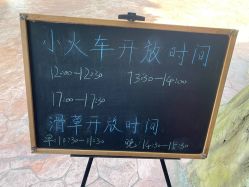 小火车开放时间
12:00—12:30 13:30—14:00
17:00—17:30
滑草开放时间
早:10:30—11:30 晚:14:30—15:30